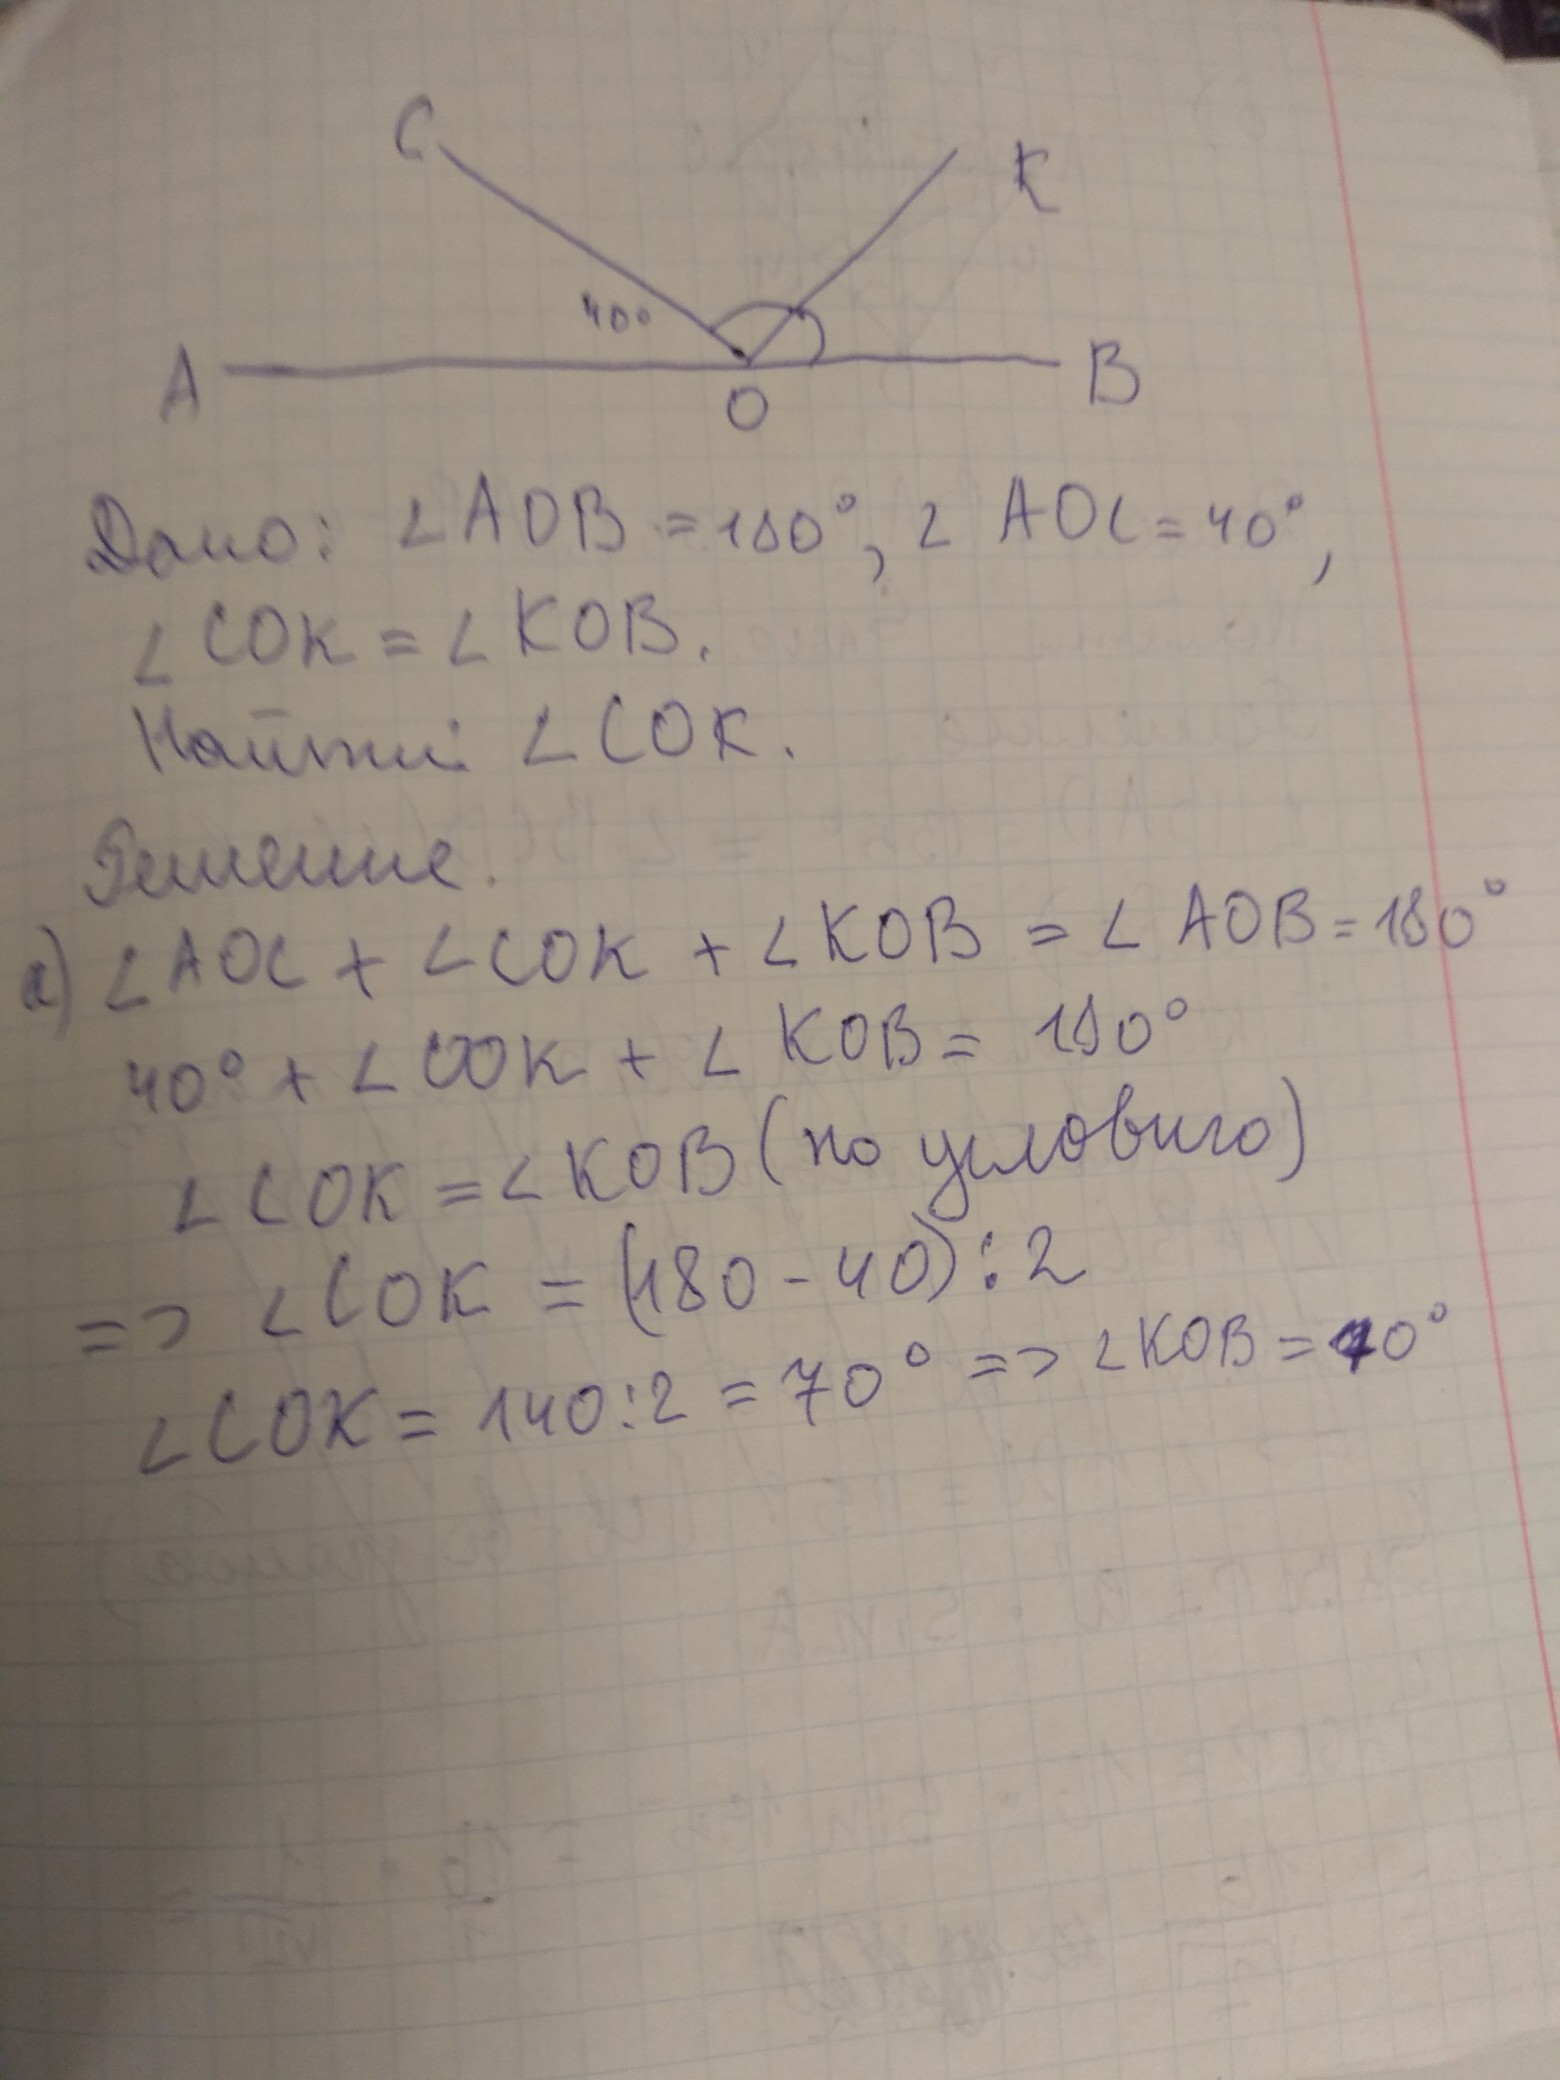 C
K
40°
A
O
B
Дано: ∠AOB = 180°, ∠ AOC = 40°,
∠COK = ∠KOB.
Найти: ∠COK.
Решение.
а) ∠AOC + ∠COK + ∠KOB = ∠ AOB = 180°
40° + ∠COK + ∠ KOB = 180°
∠COK = ∠KOB (по условию)
=> ∠COK = (180 - 40) : 2
∠COK = 140:2 = 70° => ∠KOB = 70°